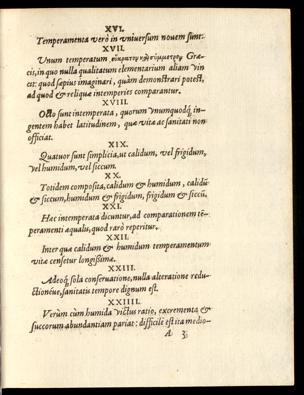 XVI.
Temperamenta verò in vniuersum nouem sunt.
XVII.
Vnum temperatum εὔκρατον καὶ σύμμετρον Græ-
cis, in quo nulla qualitatum elementarium aliam vin
cit: quod sæpius imaginari, quàm demonstrari potest,
ad quod & reliquæ intemperies comparantur.
XVIII.
Octo sunt intemperata, quorum vnumquodq́, in-
gentem habet latitudinem, quæ vitæ ac sanitati non
officiat.
XIX.
Quatuor sunt simplicia, ut calidum, vel frigidum,
vel humidum, vel siccum.
XX.
Totidem composita, calidum & humidum, calidũ
& siccum, humidum & frigidum, frigidum & siccũ.
XXI.
Hæc intemperata dicuntur, ad comparationem tē-
peramenti æqualis, quod rarò reperitur.
XXII.
Inter quæ calidum & humidum temperamentum
vitæ censetur longissimæ.
XXIII.
Adeoq́; sola conseruatione, nulla alteratione redu-
ctionéue, sanitatis tempore dignum est.
XXIIII.
Verùm cùm humida victus ratio, excrementa &
succorum abundantiam pariat: difficilè est ita medio-
A 3